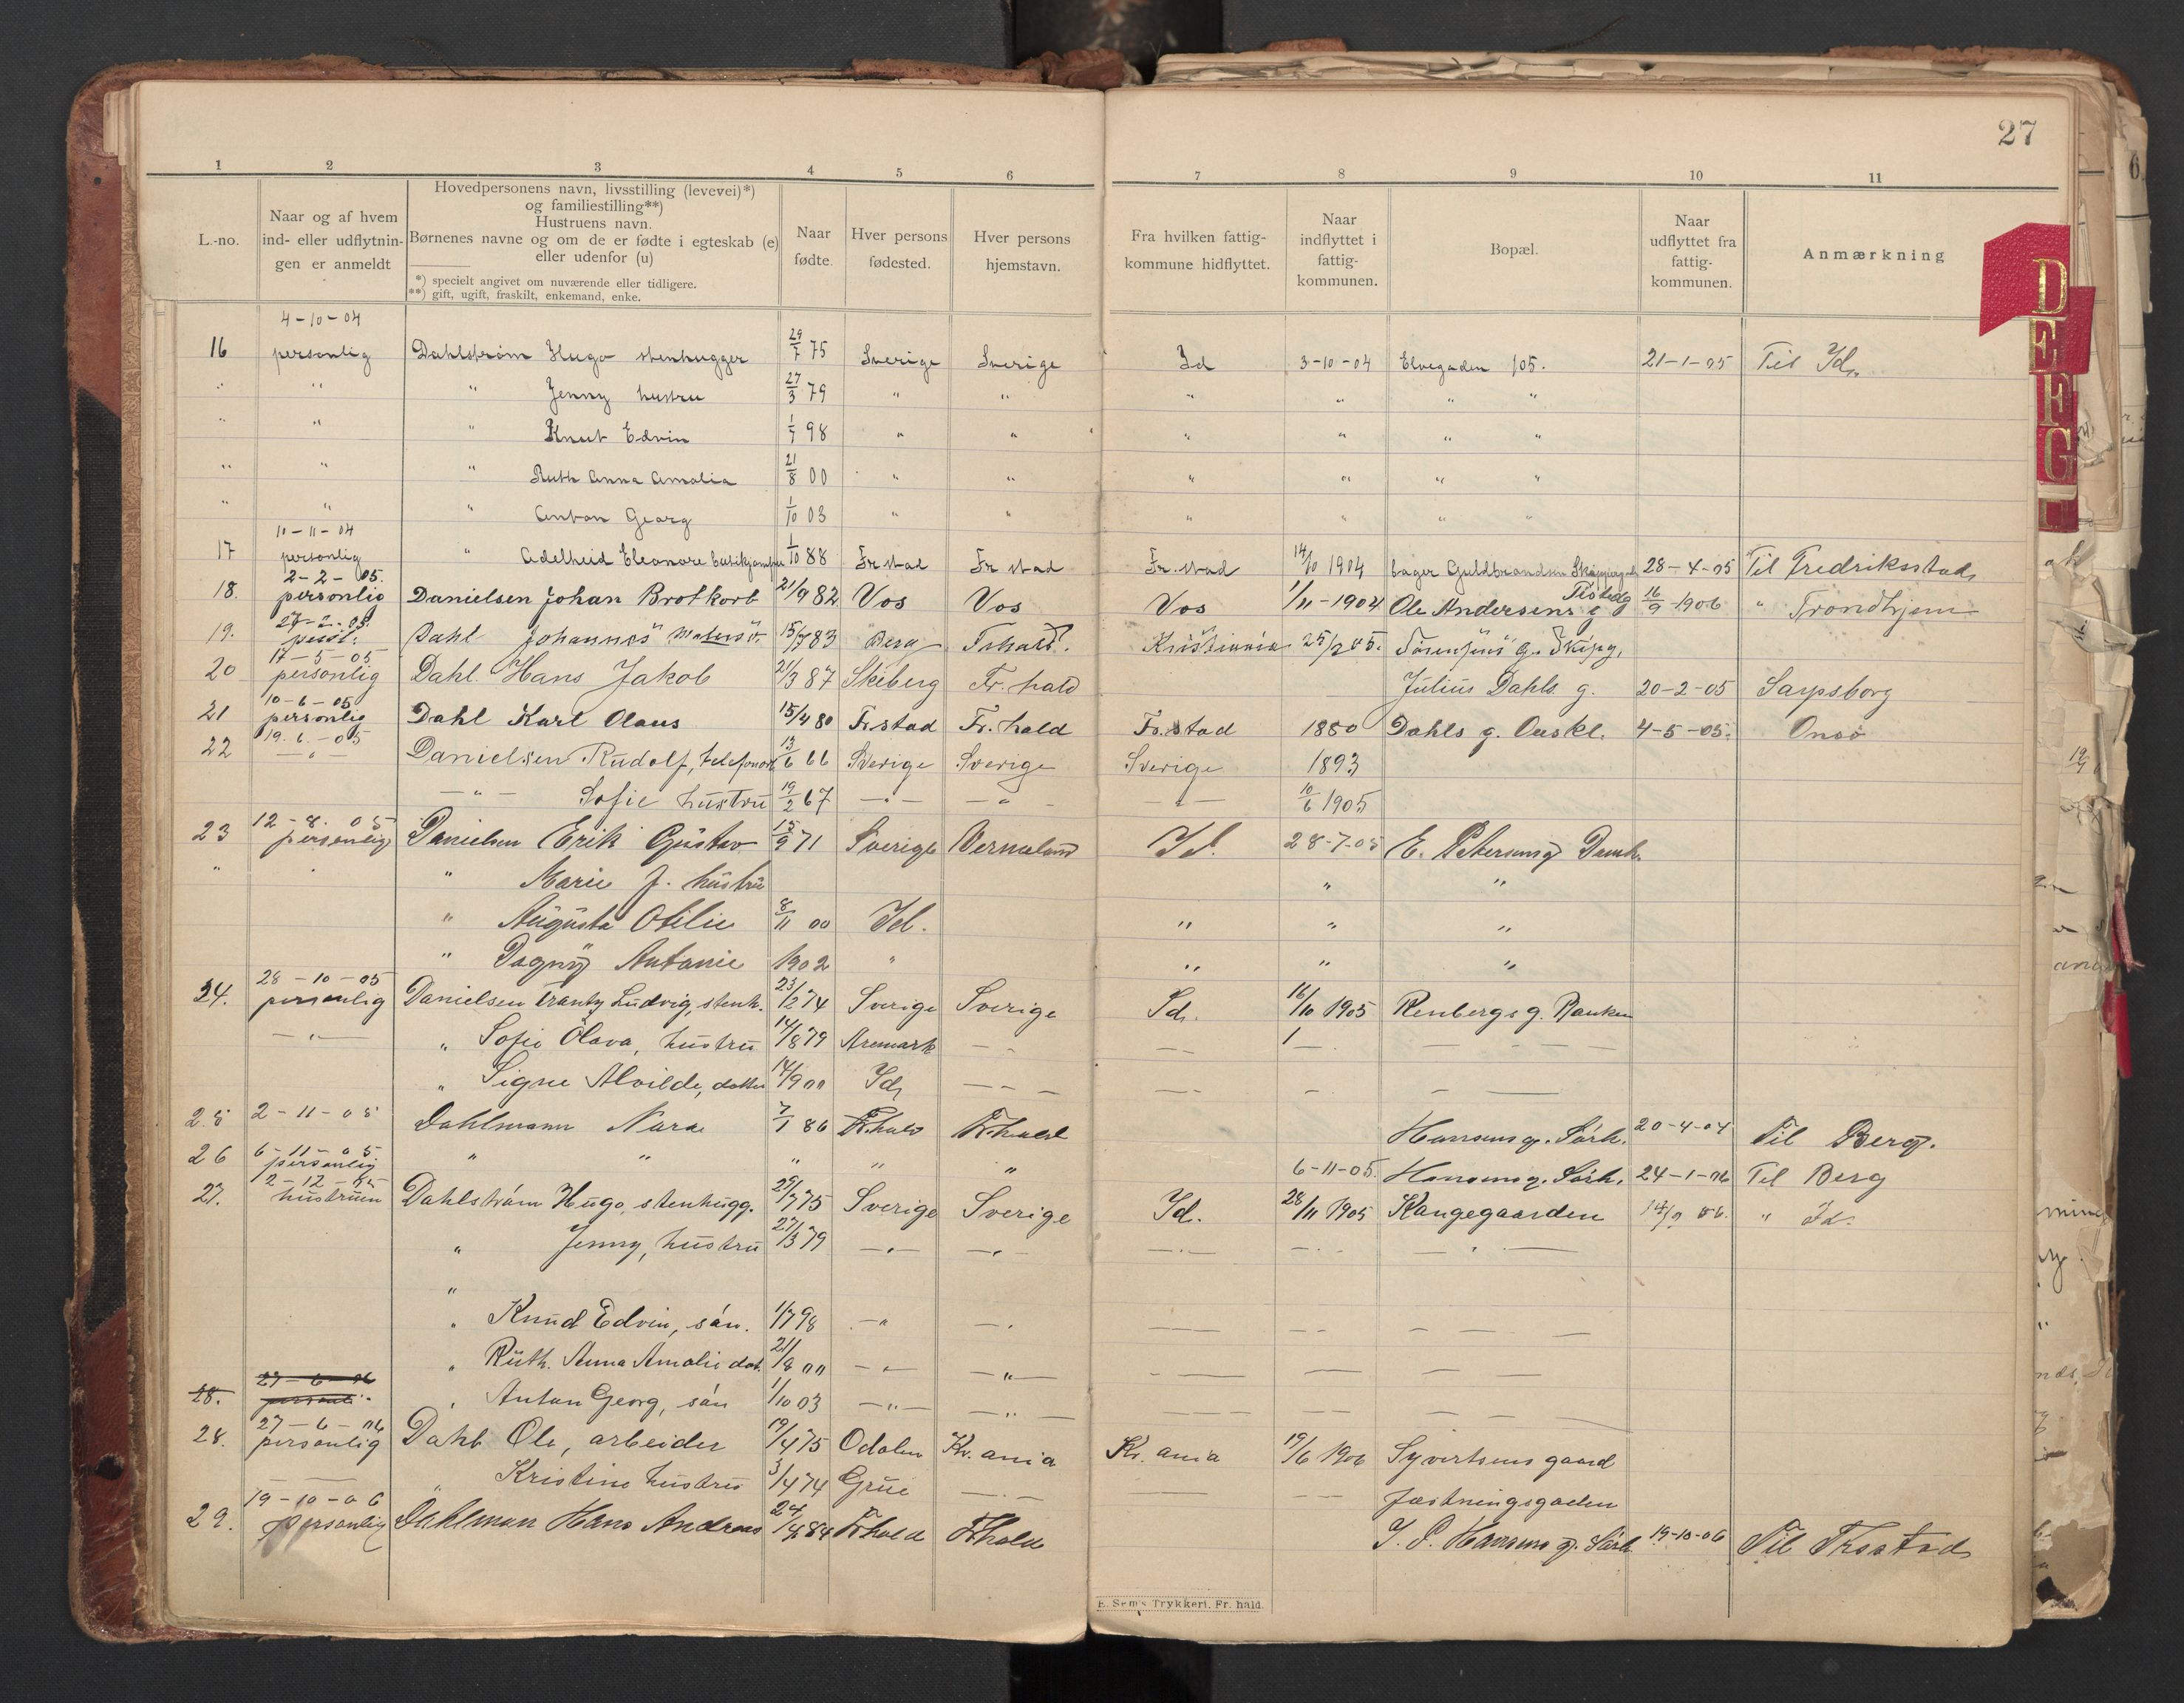 27
1 2 3 4 5 6 7 8 9 10 11
L.-no.
Naar og af hvem ind- eller udflytnin- gen er anmeldt
Hovedpersonens navn, livsstilling (levevei)*) og familiestilling**)
Hustruens navn.
Børnenes navne og om de er fødte i egteskab (e) eller udenfor (u)
*) specielt angivet om nuværende eller tidligere.
**) gift, ugift, fraskilt, enkemand, enke.
Naar fødte.
Hver persons fødested.
Hver persons hjemstavn.
Fra hvilken fattig- kommune hidflyttet.
Naar indflyttet i fattig- kommunen.
Bopæl.
Naar udflyttet fra fattig- kommunen.
Anmærkning
D
E
F
G
4-10-04
16 personlig Dahlström Hugo stenhugger 29/7 75 Sverige Sverige Id 3-10-04 Elvegaden 105. 21-1-05 Til Id.
" " " Jenny hustru 27/3 79 " " " " " "
" " " Knut Edvin 1/7 98 " " " " " "
" " " Ruth Anna Amalia 21/8 00 " " " " " "
" " " Anton Georg 1/10 03 " " " " " "
10-11-04
17 personlig " Adelheid Eleonore 1/10 88 Fr stad Fr stad Fr. stad 14/10 1904 bager Guldbrandsen 28-4-05 Til Fredriksstad
2-2-05.
18. personlig Danielsen Johan Brotkorb 21/9 82 Vos Vos Vos 1/11-1904 Ole Andersens g Tistedg 16/9-1906 " Trondhjem
27-2-05.
19. Dahl Johannes 15/7 83 Berg Frhald. Kristiania 25/2 05. g. Skipg.
17-5-05
20 personlig Dahl. Hans Jakob 21/3 87 Skiberg Fr. hald Julius Dahls g. 20-2-05 Sarpsborg
10-6-05
21 personlig Dahl Karl Olaus 15/4 80 Fr.stad Fr. hald Fr. stad 1880 Dahls g. Ouskl. 4-5-05. Onsö
19.6.-05
22 — " — Danielsen Rudolf, 13/6 66 Sverige Sverige Sverige 1893
— " — Sofie hustru 19/2 67 — " — — " — — " — 10/6 1905
12-8.05
23 personlig Danielsen Erik Gustav 15/9 71 Sverige Vermland Id. 28-7-05 E. Petersens g Damh.
" " " Marie J. hustru " "
" Augusta Otilie 8/11 00 Id. " " "
" Dagny Antonie 1902 " " " "
28-10-05
24. personlig Danielsen Frantz Ludvig, stenh. 23/12 74 Sverige Sverige Id. 16/10 1905 Renbergs g. Banken
— " — " Sofie Olava, hustru 14/8 79 Aremark — " — —
" Signe Alvilde, datter 14/9 00 Id, — — —
25 2-11-05 Dahlmann Nora 7/1 86 Fr.hald Fr.hald Hansens g. Sörh. 20-4-04 Til Berg.
6-11-05
26 personlig " " " " " 6-11-05. Hansens g. Sörh. 24-1-06 Til Berg
2-12-05
27. hustruen Dahlström Hugo, stenhugg. 29/7 75 Sverige Sverige Id. 28/11 1905 Kangegaarden 14/9 06. " Id.
" Jenny, hustru 27/3 79 — " — — " — — " — — " — — " —
"
" Knud Edvin, sön. 1/7 98 — " — "
" Ruth. Anna Amalie dat. 21/8 00 — " — — " —
28. 27-6-06 personli " Anton Georg, sön 1/10 03 — " — — " —
27-6-06
28. personlig Dahl Ole, arbeider 19/4 75 Odalen Kr. ania Kr. ania 19/6 1906 Syvertsens gaard
— " Kristine hustru 3/4 74 Grue — " — — — Fæstningsgaden
19-10-06
29. personlig Dahlman Hans Andreas 24/4 84 Fr.hald Fr.hald J. P. Hansens g. Sörh. 19-10-06 Til Thostad
E. Sem's Trykkeri. Fr. hald.